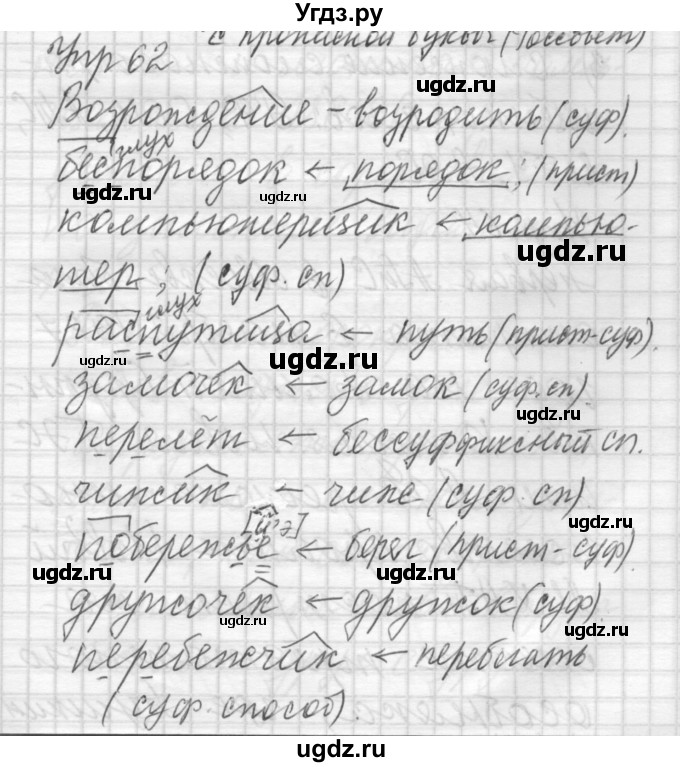 Угдз.ру
с прописной буквы (
Упр 62
ugdz.ru
Возрождение – возродить (суф).
глух ugdz.ru
беспорядок ← порядок; (прист)
ugdz.ru ugdz.ru
компьютерщик ← компью-
ugdz.ru
тер; (суф. сп)
глух
распутица ← путь (прист-суф).
ugdz.ru ugdz.ru ugdz.ru
замочек ← замок (суф. сп).
ugdz.ru
перелёт ← бессуффиксный сп.
чижик ← чиж (суф. сп)
[й'э]
побережье ← берег (прист-суф)
ugdz.ru ugdz.ru
дружочек ← дружок (суф)
ugdz.ru
перебежчик ← перебегать
ugdz.ru
(суф. способ).
ugdz.ru